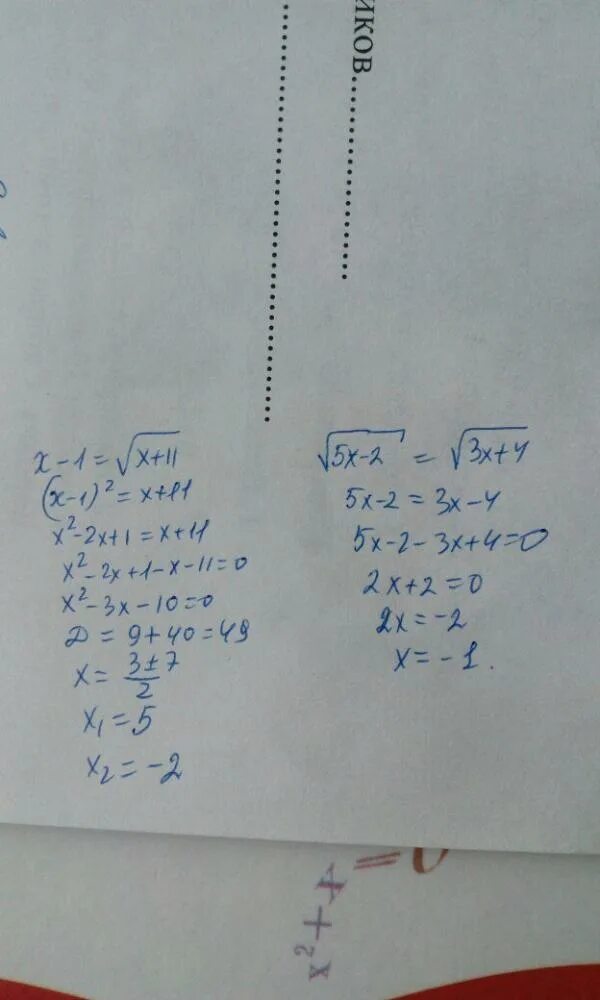 иков
x-1=√x+11
(x-1)²=x+11
x²-2x+1=x+11
x²-2x+1-x-11=0
x²-3x-10=0
D=9+40=49
x=3±7/2
x₁=5
x₂=-2
√5x-2=√3x+4
5x-2=3x-4
5x-2-3x+4=0
2x+2=0
2x=-2
x=-1.
x²+x=0